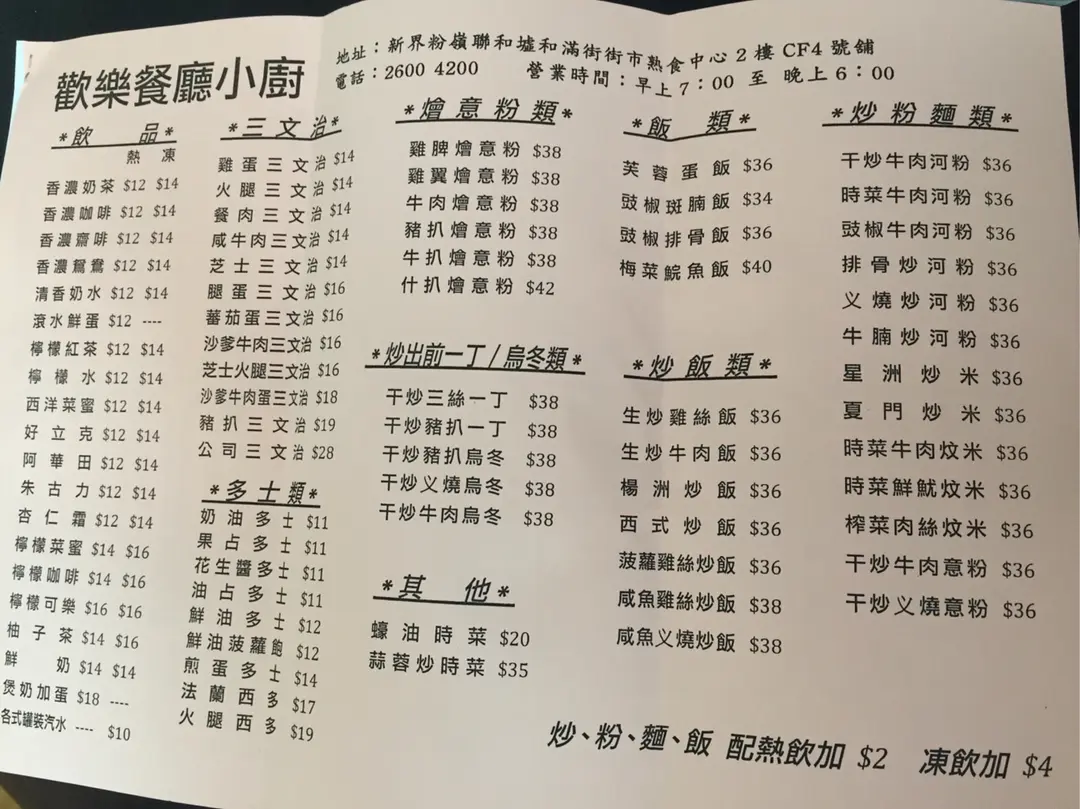 歡樂餐廳小廚
地址：新界粉嶺聯和墟和滿街街市熟食中心2樓CF4號舖
電話：2600 4200 營業時間：早上7：00 至 晚上6：00
*飲 品*
熱 凍
香濃奶茶 $12 $14
香濃咖啡 $12 $14
香濃齋啡 $12 $14
香濃鴛鴦 $12 $14
清香奶水 $12 $14
滾水鮮蛋 $12 ----
檸檬紅茶 $12 $14
檸檬水 $12 $14
西洋菜蜜 $12 $14
好立克 $12 $14
阿華田 $12 $14
朱古力 $12 $14
杏仁霜 $12 $14
檸檬菜蜜 $14 $16
檸檬咖啡 $14 $16
檸檬可樂 $16 $16
柚子茶 $14 $16
鮮奶 $14 $14
煲奶加蛋 $18 ----
各式罐裝汽水 ---- $10
*三文治*
雞蛋三文治 $14
火腿三文治 $14
餐肉三文治 $14
咸牛肉三文治 $14
芝士三文治 $14
腿蛋三文治 $16
蕃茄蛋三文治 $16
沙爹牛肉三文治 $16
芝士火腿三文治 $16
沙爹牛肉蛋三文治 $18
豬扒三文治 $19
公司三文治 $28
*多士類*
奶油多士 $11
果占多士 $11
花生醬多士 $11
油占多士 $11
鮮油多士 $12
鮮油菠蘿飽 $12
煎蛋多士 $14
法蘭西多 $17
火腿西多 $19
*燴意粉類*
雞脾燴意粉 $38
雞翼燴意粉 $38
牛肉燴意粉 $38
豬扒燴意粉 $38
牛扒燴意粉 $38
什扒燴意粉 $42
*炒出前一丁/烏冬類*
干炒三絲一丁 $38
干炒豬扒一丁 $38
干炒豬扒烏冬 $38
干炒义燒烏冬 $38
干炒牛肉烏冬 $38
*其 他*
蠔油時菜 $20
蒜蓉炒時菜 $35
*飯 類*
芙蓉蛋飯 $36
豉椒斑腩飯 $34
豉椒排骨飯 $36
梅菜鯇魚飯 $40
*炒飯類*
生炒雞絲飯 $36
生炒牛肉飯 $36
楊洲炒飯 $36
西式炒飯 $36
菠蘿雞絲炒飯 $36
咸魚雞絲炒飯 $38
咸魚义燒炒飯 $38
*炒粉麵類*
干炒牛肉河粉 $36
時菜牛肉河粉 $36
豉椒牛肉河粉 $36
排骨炒河粉 $36
义燒炒河粉 $36
牛腩炒河粉 $36
星洲炒米 $36
夏門炒米 $36
時菜牛肉炆米 $36
時菜鮮魷炆米 $36
榨菜肉絲炆米 $36
干炒牛肉意粉 $36
干炒义燒意粉 $36
炒、粉、麵、飯 配熱飲加 $2 凍飲加 $4